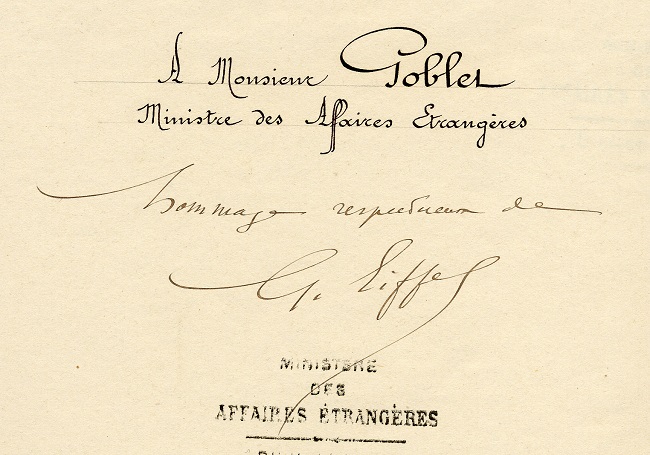 A Monsieur Goblet
Ministre des Affaires Etrangères
hommage respectueux de
G. Eiffel
MINISTÈRE
DES
AFFAIRES ÉTRANGÈRES